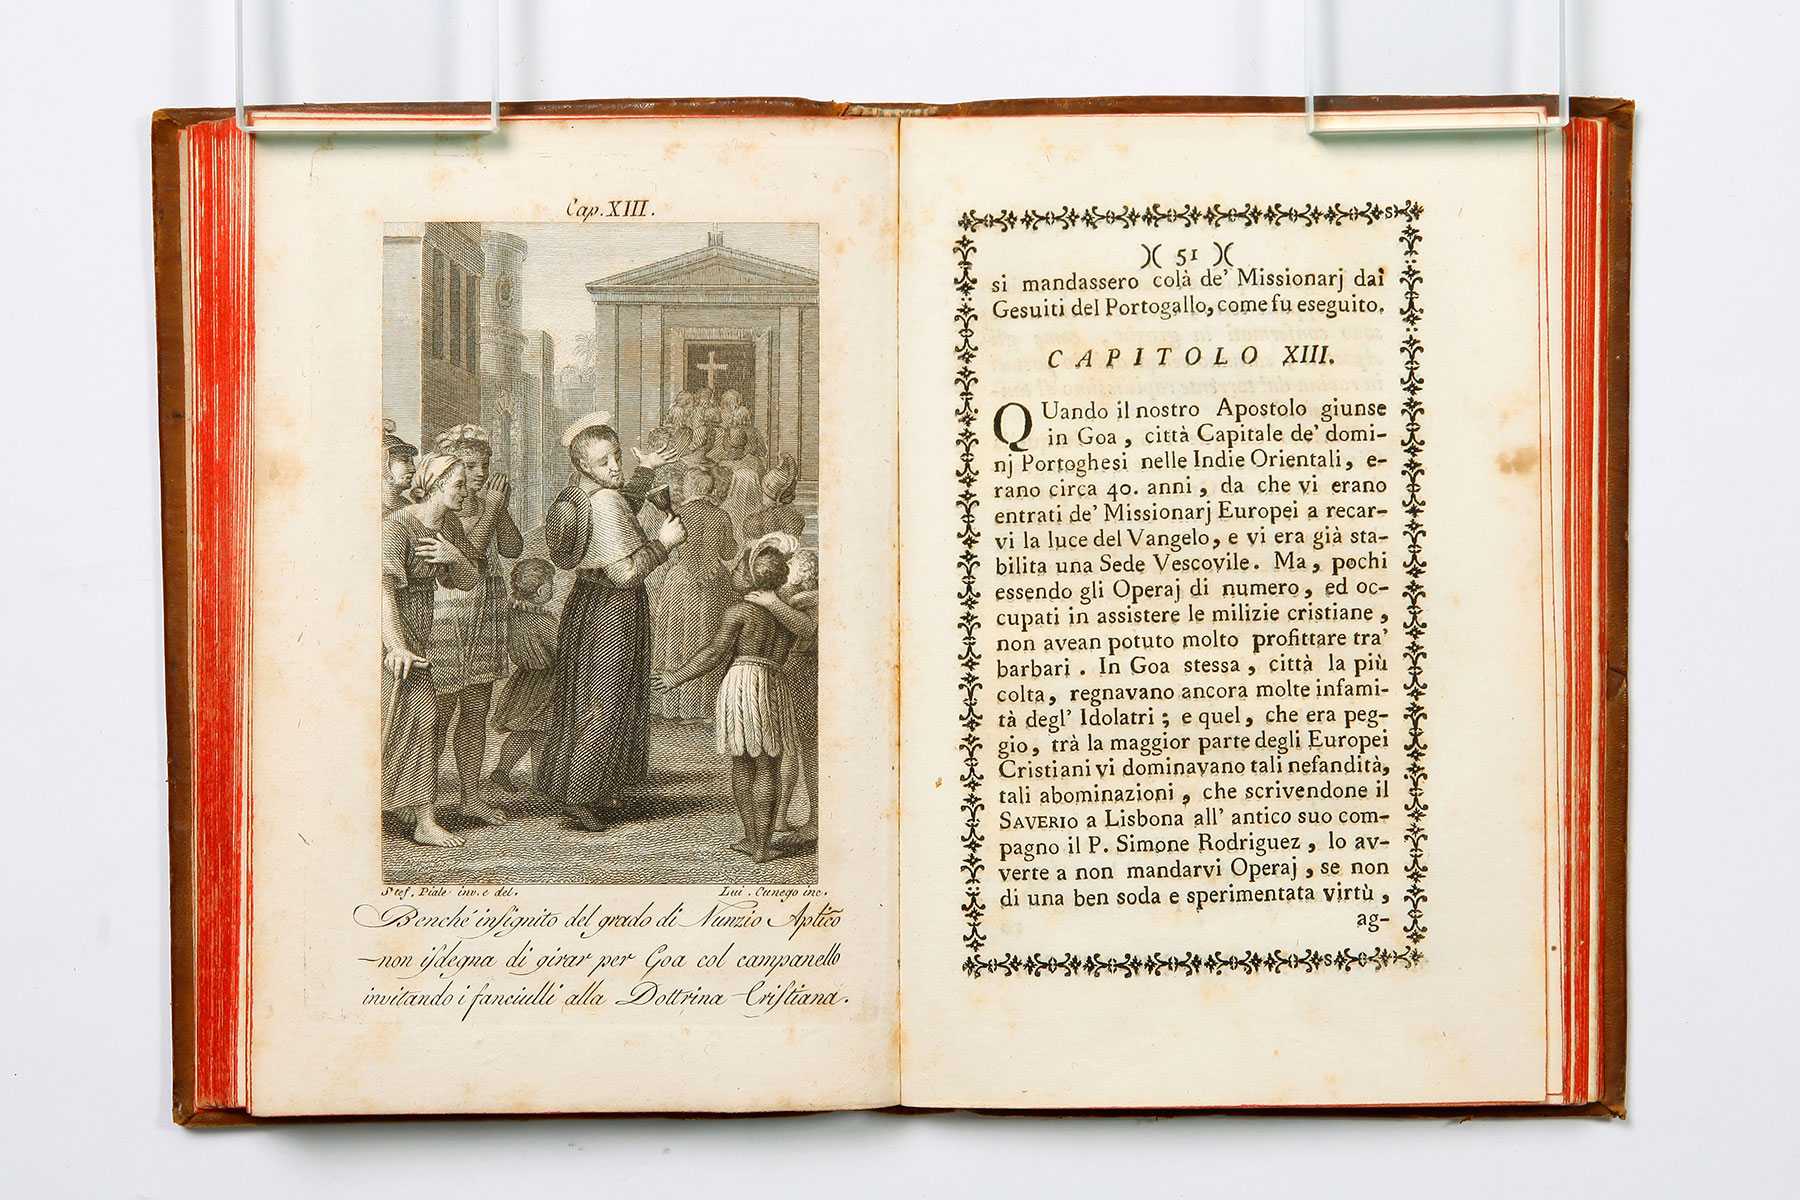 Cap. XIII.
Stef. Piale inv. e del.
Lui. Cunego inc.
Benché insignito del grado di Nunzio Aptico
non isdegna di girar per Goa col campanello
invitando i fanciulli alla Dottrina Cristiana.
)( 51 )(
si mandassero colà de' Missionarj dai
Gesuiti del Portogallo, come fu eseguito.
CAPITOLO XIII.
QUando il nostro Apostolo giunse
in Goa, città Capitale de' domi-
nj Portoghesi nelle Indie Orientali, e-
rano circa 40. anni, da che vi erano
entrati de' Missionarj Europei a recar-
vi la luce del Vangelo, e vi era già sta-
bilita una Sede Vescovile. Ma, pochi
essendo gli Operaj di numero, ed oc-
cupati in assistere le milizie cristiane,
non avean potuto molto profittare tra'
barbari. In Goa stessa, città la più
colta, regnavano ancora molte infami-
tà degl' Idolatri; e quel, che era peg-
gio, trà la maggior parte degli Europei
Cristiani vi dominavano tali nefandità,
tali abominazioni, che scrivendone il
SAVERIO a Lisbona all' antico suo com-
pagno il P. Simone Rodriguez, lo av-
verte a non mandarvi Operaj, se non
di una ben soda e sperimentata virtù,
ag-